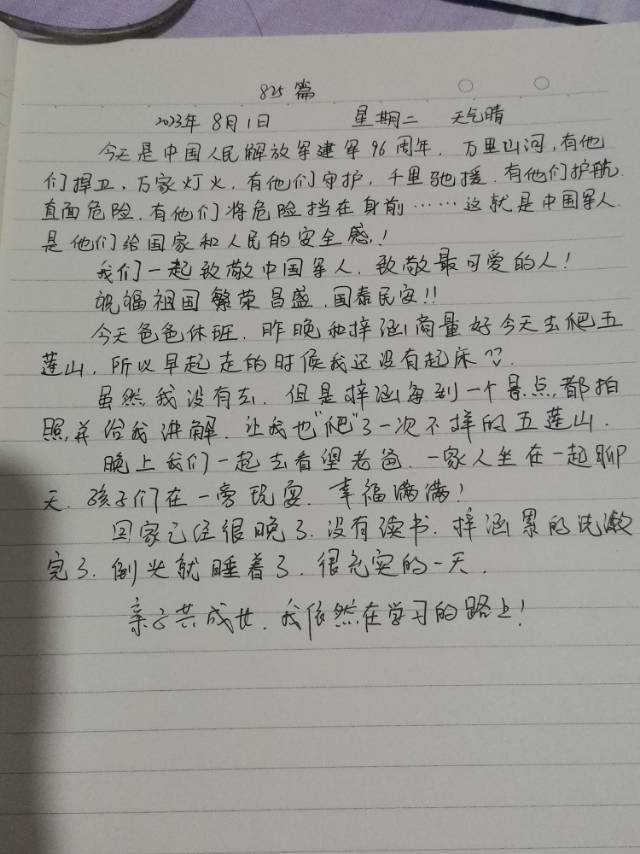 825篇
2023年8月1日 星期二 天气晴
今天是中国人民解放军建军96周年. 万里山河,有他
们捍卫,万家灯火,有他们守护,千里驰援,有他们护航
直面危险,有他们将危险挡在身前……这就是中国军人
是他们给国家和人民的安全感!
我们一起致敬中国军人,致敬最可爱的人!
祝福祖国繁荣昌盛,国泰民安!!
今天爸爸休班,昨晚和梓涵商量好今天去爬五
莲山,所以早起走的时候我还没有起床??.
虽然我没有去,但是梓涵每到一个景点,都拍
照,并给我讲解,让我也"爬"了一次不一样的五莲山.
晚上我们一起去看望老爸,一家人坐在一起聊
天,孩子们在一旁玩耍,幸福满满!
回家已经很晚了,没有读书,梓涵累的洗漱
完了,倒头就睡着了,很充实的一天.
亲子共成长,我依然在学习的路上!